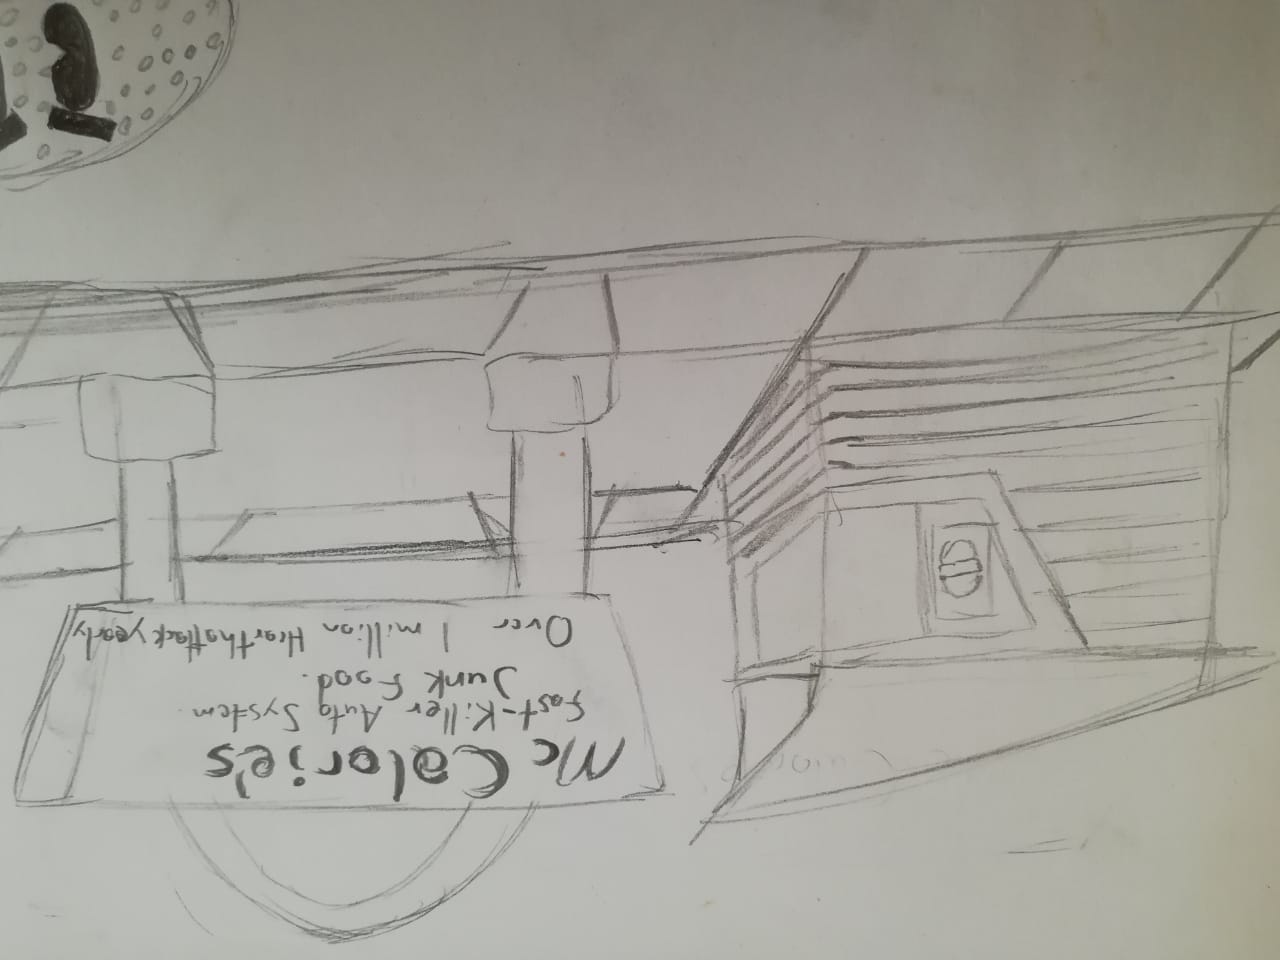 Mc Calorie's
Fast-Killer Auto System
Junk Food.
Over 1 million Hearthattack yearly